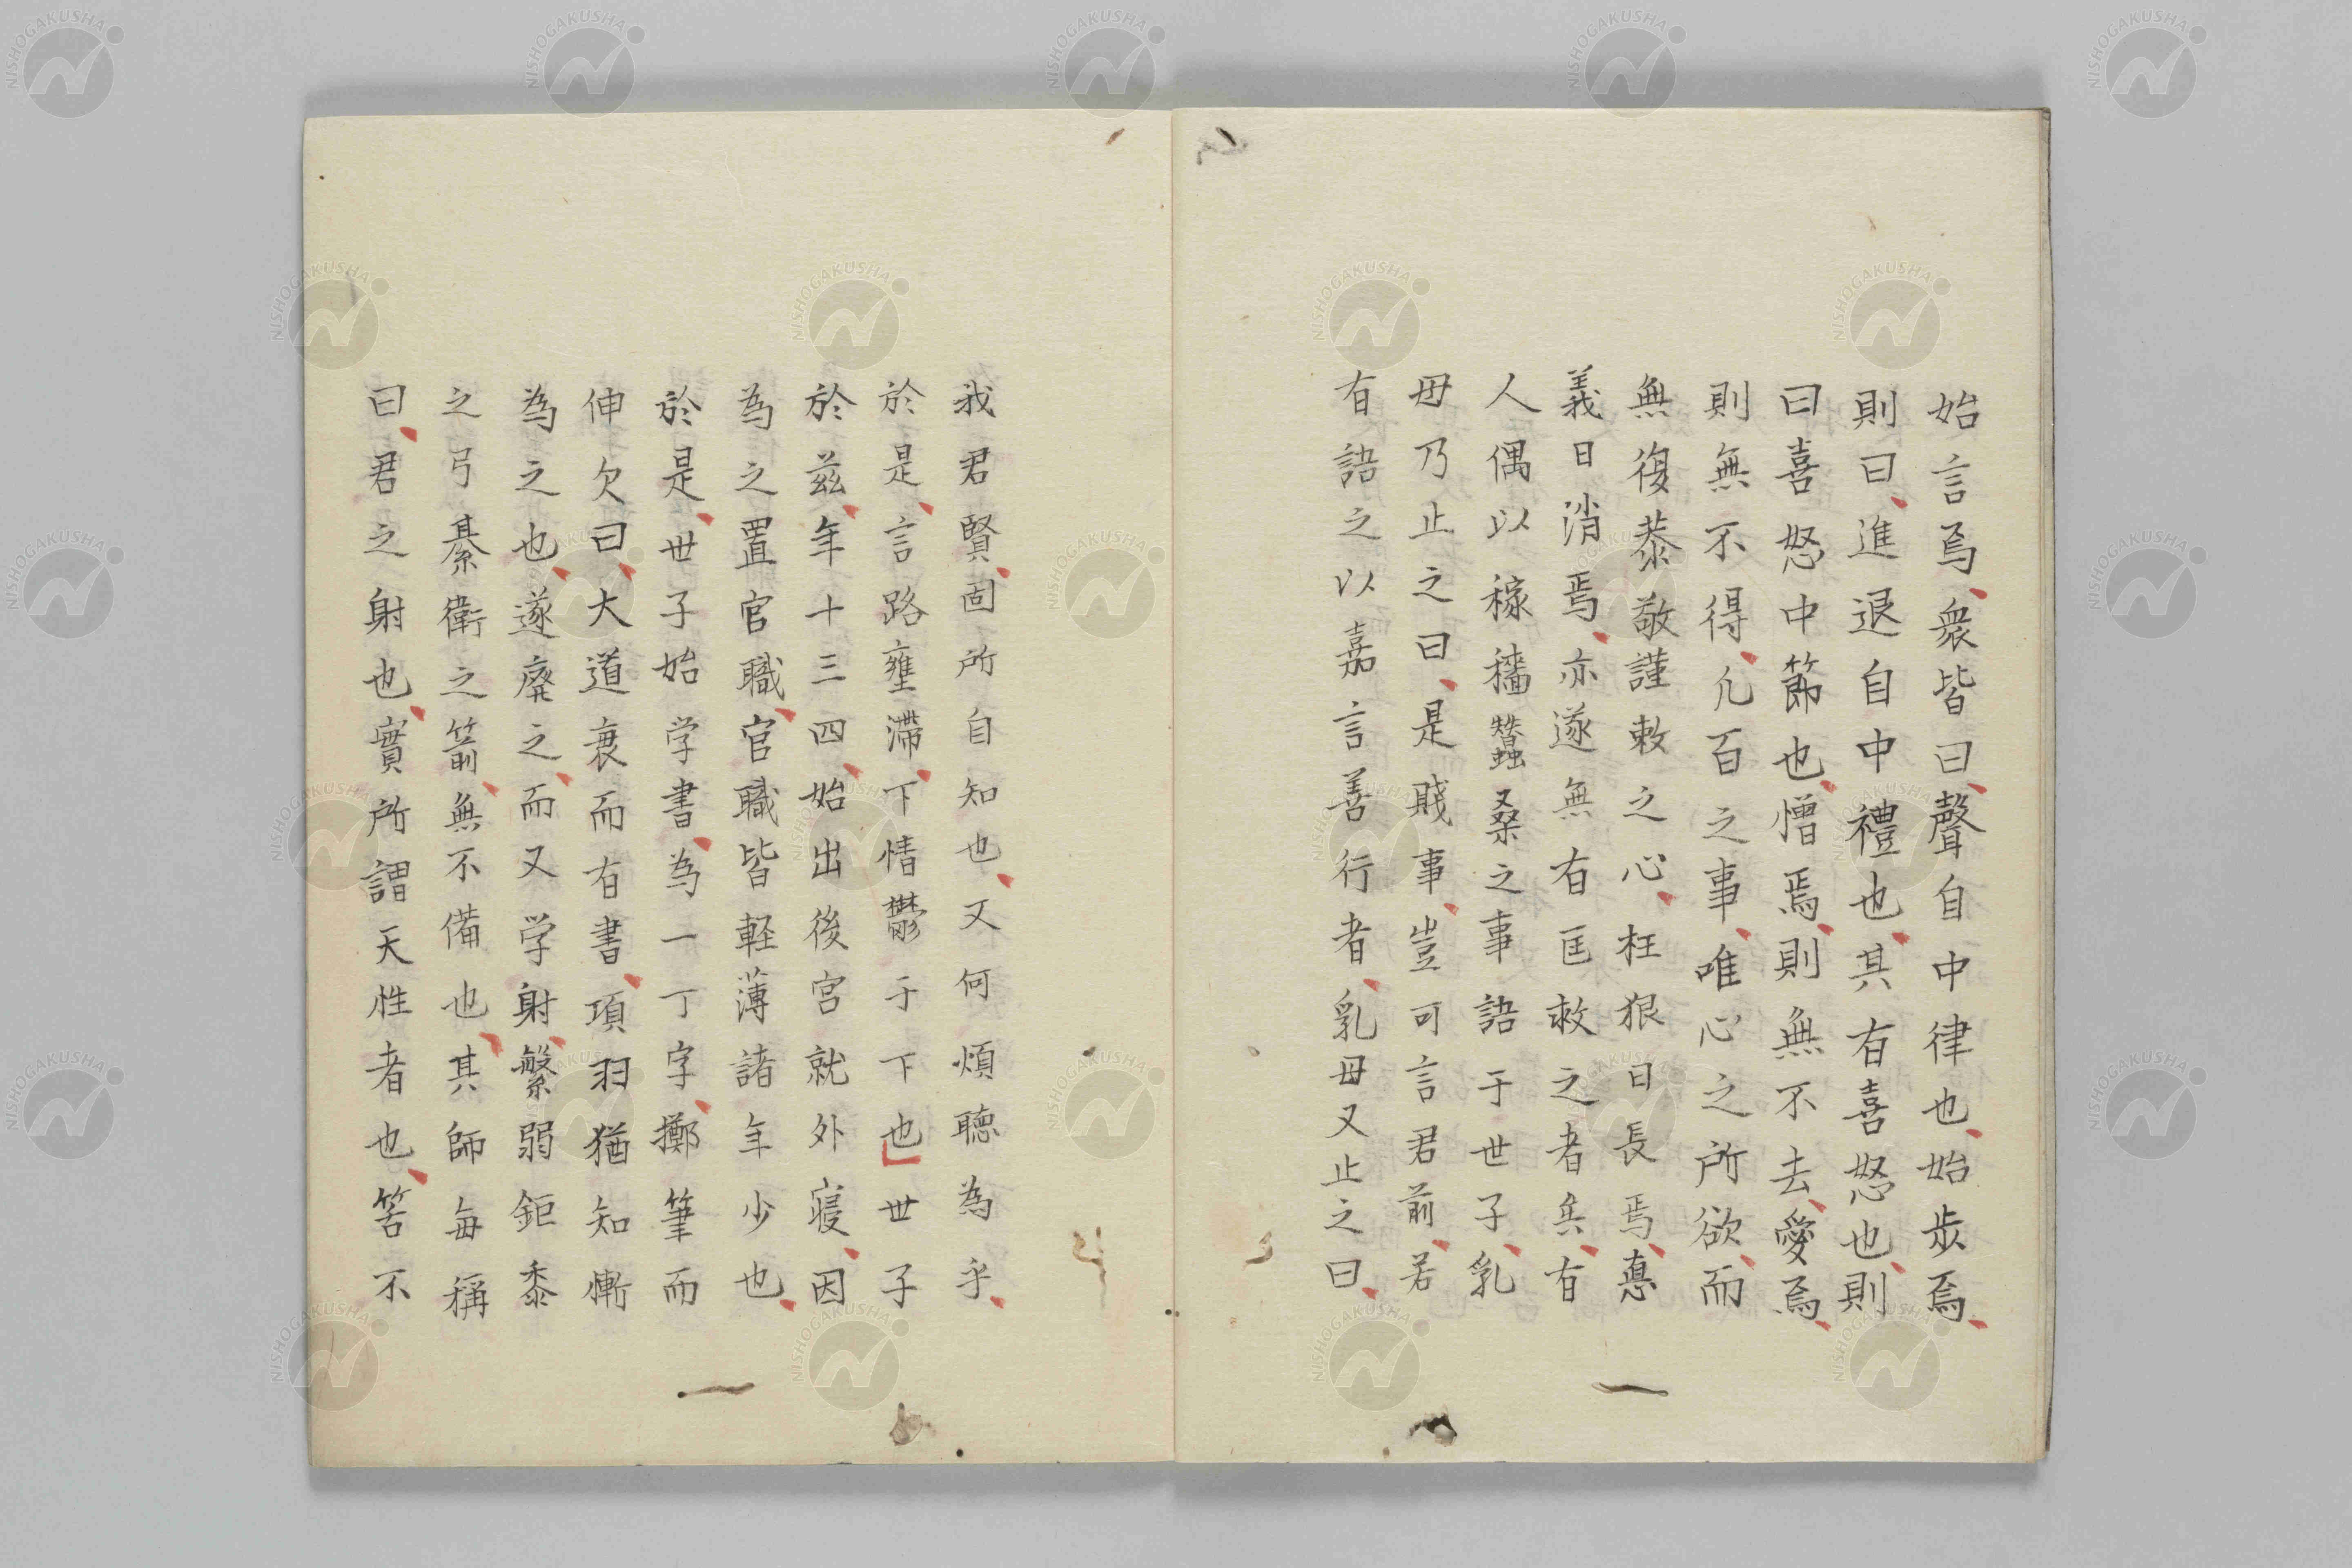 始言焉、衆皆曰、聲自中律也、始步焉、
則曰、進退自中禮也、其有喜怒也、則
曰喜怒中節也、憎焉、則無不去、愛焉、
則無不得、凡百之事、唯心之所欲、而
無復恭敬謹敕之心、枉狠日長焉、悳
義日消焉、亦遂無有匡救之者矣、有
人偶以稼穡蠶桑之事語于世子、乳
毋乃止之曰、是賤事、豈可言君前、若
有語之以嘉言善行者、乳毋又止之曰、
我君賢、固所自知也、又何煩聴為乎、
於是、言路壅滞、下情鬱于下也」世子
於茲、年十三四、始出後宮就外寝、因
為之置官職、官職皆軽薄諸年少也、
於是、世子始学書、為一丁字、擲筆而
伸欠曰、大道衰而有書、項羽猶知慚
為之也、遂廃之、而又学射、繁弱鉅黍
之弓綦衛之箭、無不備也、其師每稱
曰、君之射也、實所謂天性者也、筈不
NISHOGAKUSHA